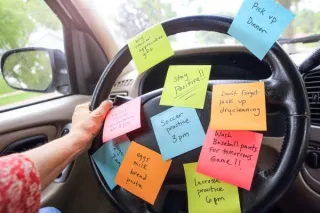 Pick up
Dinner
Stay
Positive!!
Don't forget
pick up
drycleaning
Soccer
practice
3pm
Wash
Baseball
pants For
tomorrows
Game!!
eggs
milk
bread
pasta
Lacrosse
practice
6pm